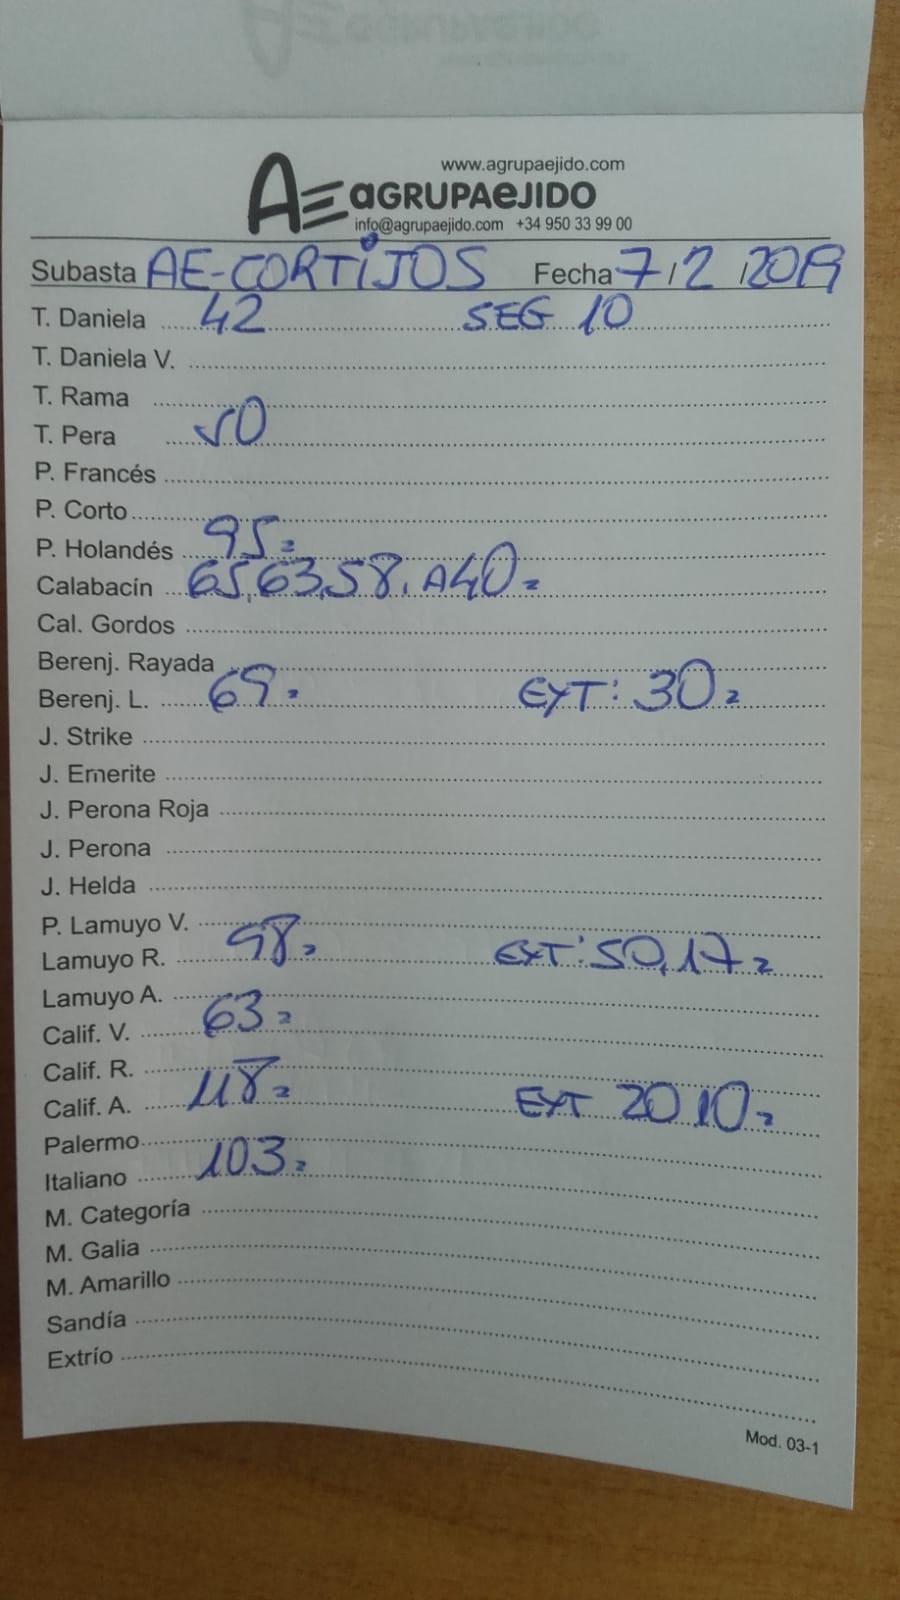 AE aGRUPAeJIDO
www.agrupaejido.com
info@agrupaejido.com +34 950 33 99 00
Subasta AE-CORTIJOS Fecha 7/2/2019
T. Daniela 42 SEG 10
T. Daniela V.
T. Rama
T. Pera 50
P. Francés
P. Corto
P. Holandés 95
Calabacín 65,63,58, A40
Cal. Gordos
Berenj. Rayada
Berenj. L. 69 EXT: 30
J. Strike
J. Emerite
J. Perona Roja
J. Perona
J. Helda
P. Lamuyo V.
Lamuyo R. 98 EXT: 50,17
Lamuyo A.
Calif. V. 63
Calif. R.
Calif. A. 118 EXT 20 10
Palermo
Italiano 103
M. Categoría
M. Galia
M. Amarillo
Sandía
Extrío
Mod. 03-1